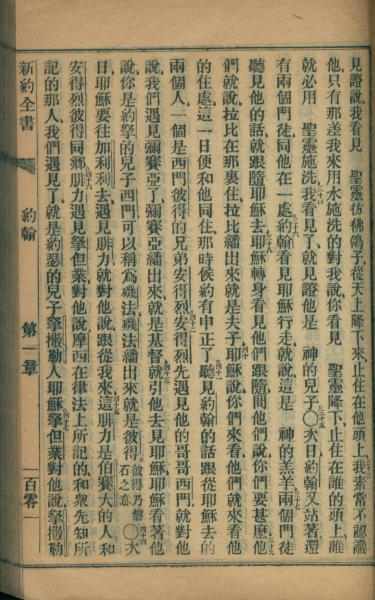 見證說我看見　聖靈彷彿鴿子從天上降下來止住在他頭上我素常不認識
他只有那差我來用水施洗的對我說你看見　聖靈降下止住在誰的頭上誰
就必用　聖靈施洗我看見了就見證他是　神的兒子〇次日約翰又站著還
有兩個門徒同他在一處約翰看見耶穌行走就說這是　神的羔羊兩個門徒
聽見他的話就跟隨耶穌去耶穌轉身看見他們跟隨間他們說你們要甚麼他
們就說拉比在那裏住拉比繙出來就是夫子耶穌說你們來看他們就來看他
的住處這一日便和他同住那時候約有申正了聽見約翰的話跟從耶穌去的
兩個人一個是西門彼得的兄弟安得烈安得烈先遇見他的哥哥西門就對他
說我們遇見彌賽亞了彌賽亞繙出來就是基督就引他去見耶穌耶穌看著他
說你是約拏的兒子西門可以稱為磯法磯法繙出來就是彼得彼得乃磐石之意〇次
日耶穌要往加利利去遇見腓力就對他說跟從我來這腓力是伯賽大的人和
安得烈彼得同鄉腓力遇見拏但業對他說摩西在律法上所記的和衆先知所
記的那人我們遇見了就是約瑟的兒子拏撒勒人耶穌拏但業對他說拏撒勒
新約全書　約翰　第一章　一百零一